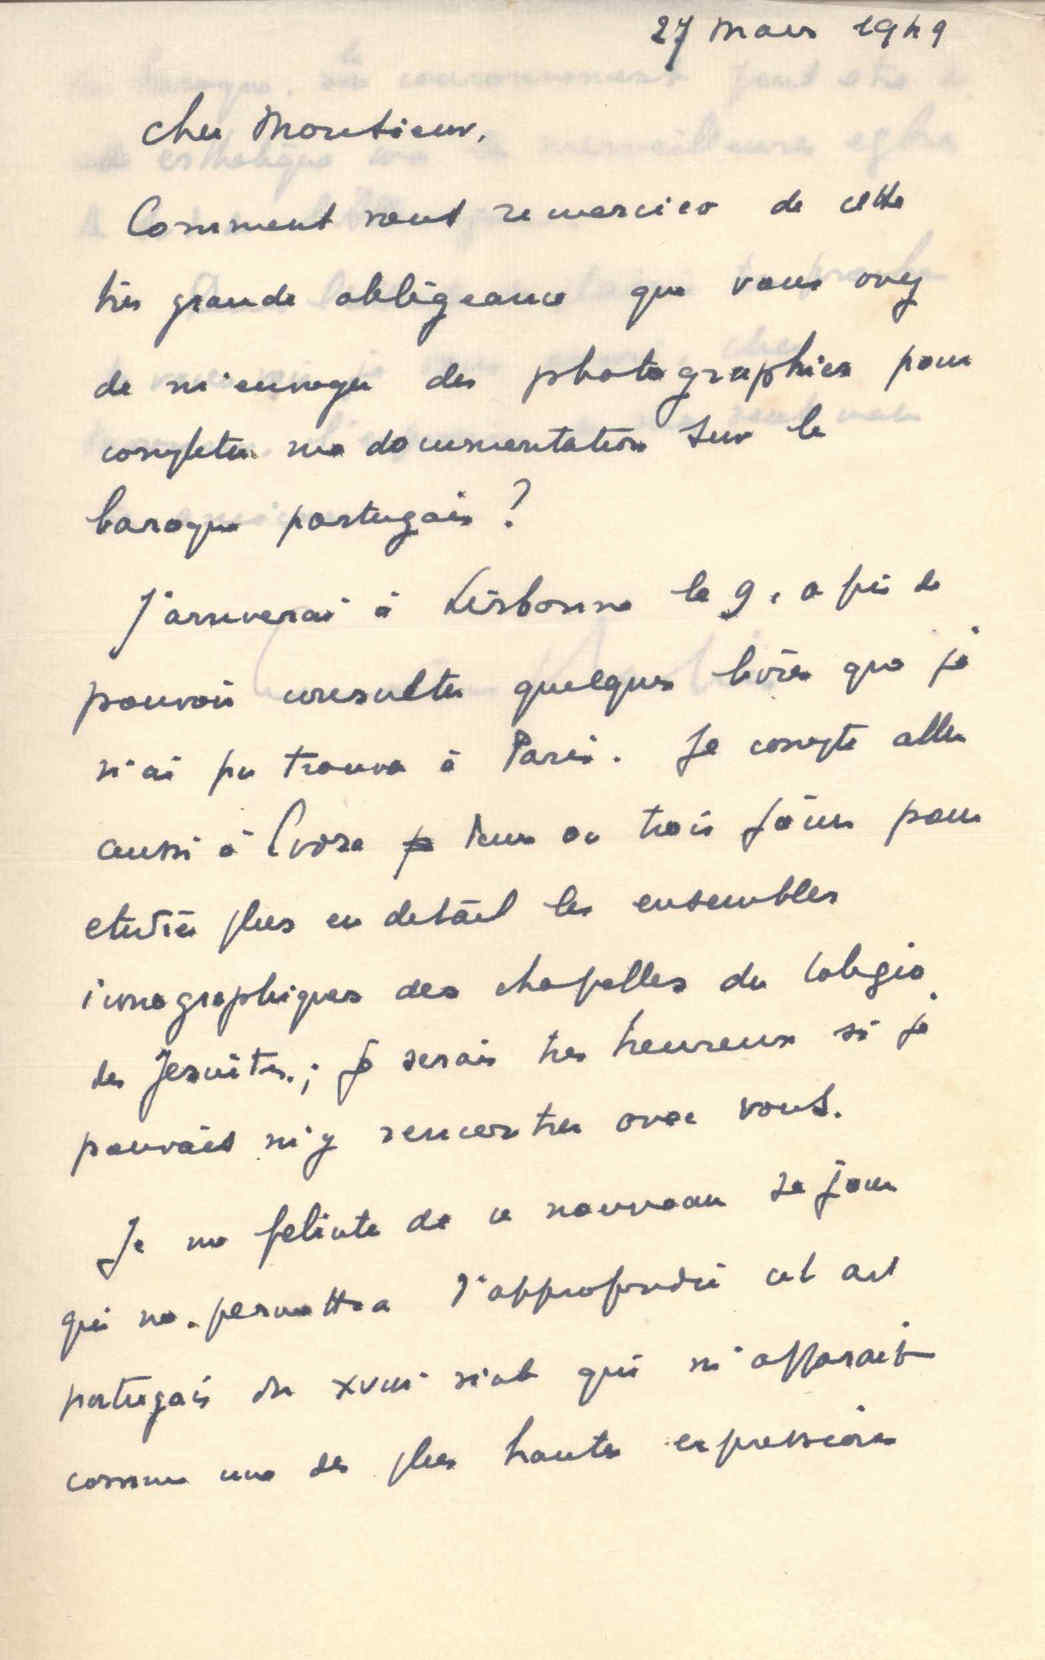 27 mars 1949
Cher Monsieur,
Comment vous remercier de cette
très grande obligeance que vous avez
de m'envoyer des photographies pour
completer ma documentation sur le
baroque portugais ?
J'arriverai à Lisbonne le 9, afin de
pouvoir consulter quelques livres que je
n'ai pu trouver à Paris. Je compte aller
aussi à Evora deux ou trois jours pour
etudier plus en detail les ensembles
iconographiques des chapelles du Colegio
des Jesuites ; je serais tres heureux si je
pouvais m'y rencontrer avec vous.
Je me felicite de ce nouveau sejour
qui me permettra d'approfondir cet art
portugais du XVIII siecle qui m'apparait
comme une des plus hautes expressions